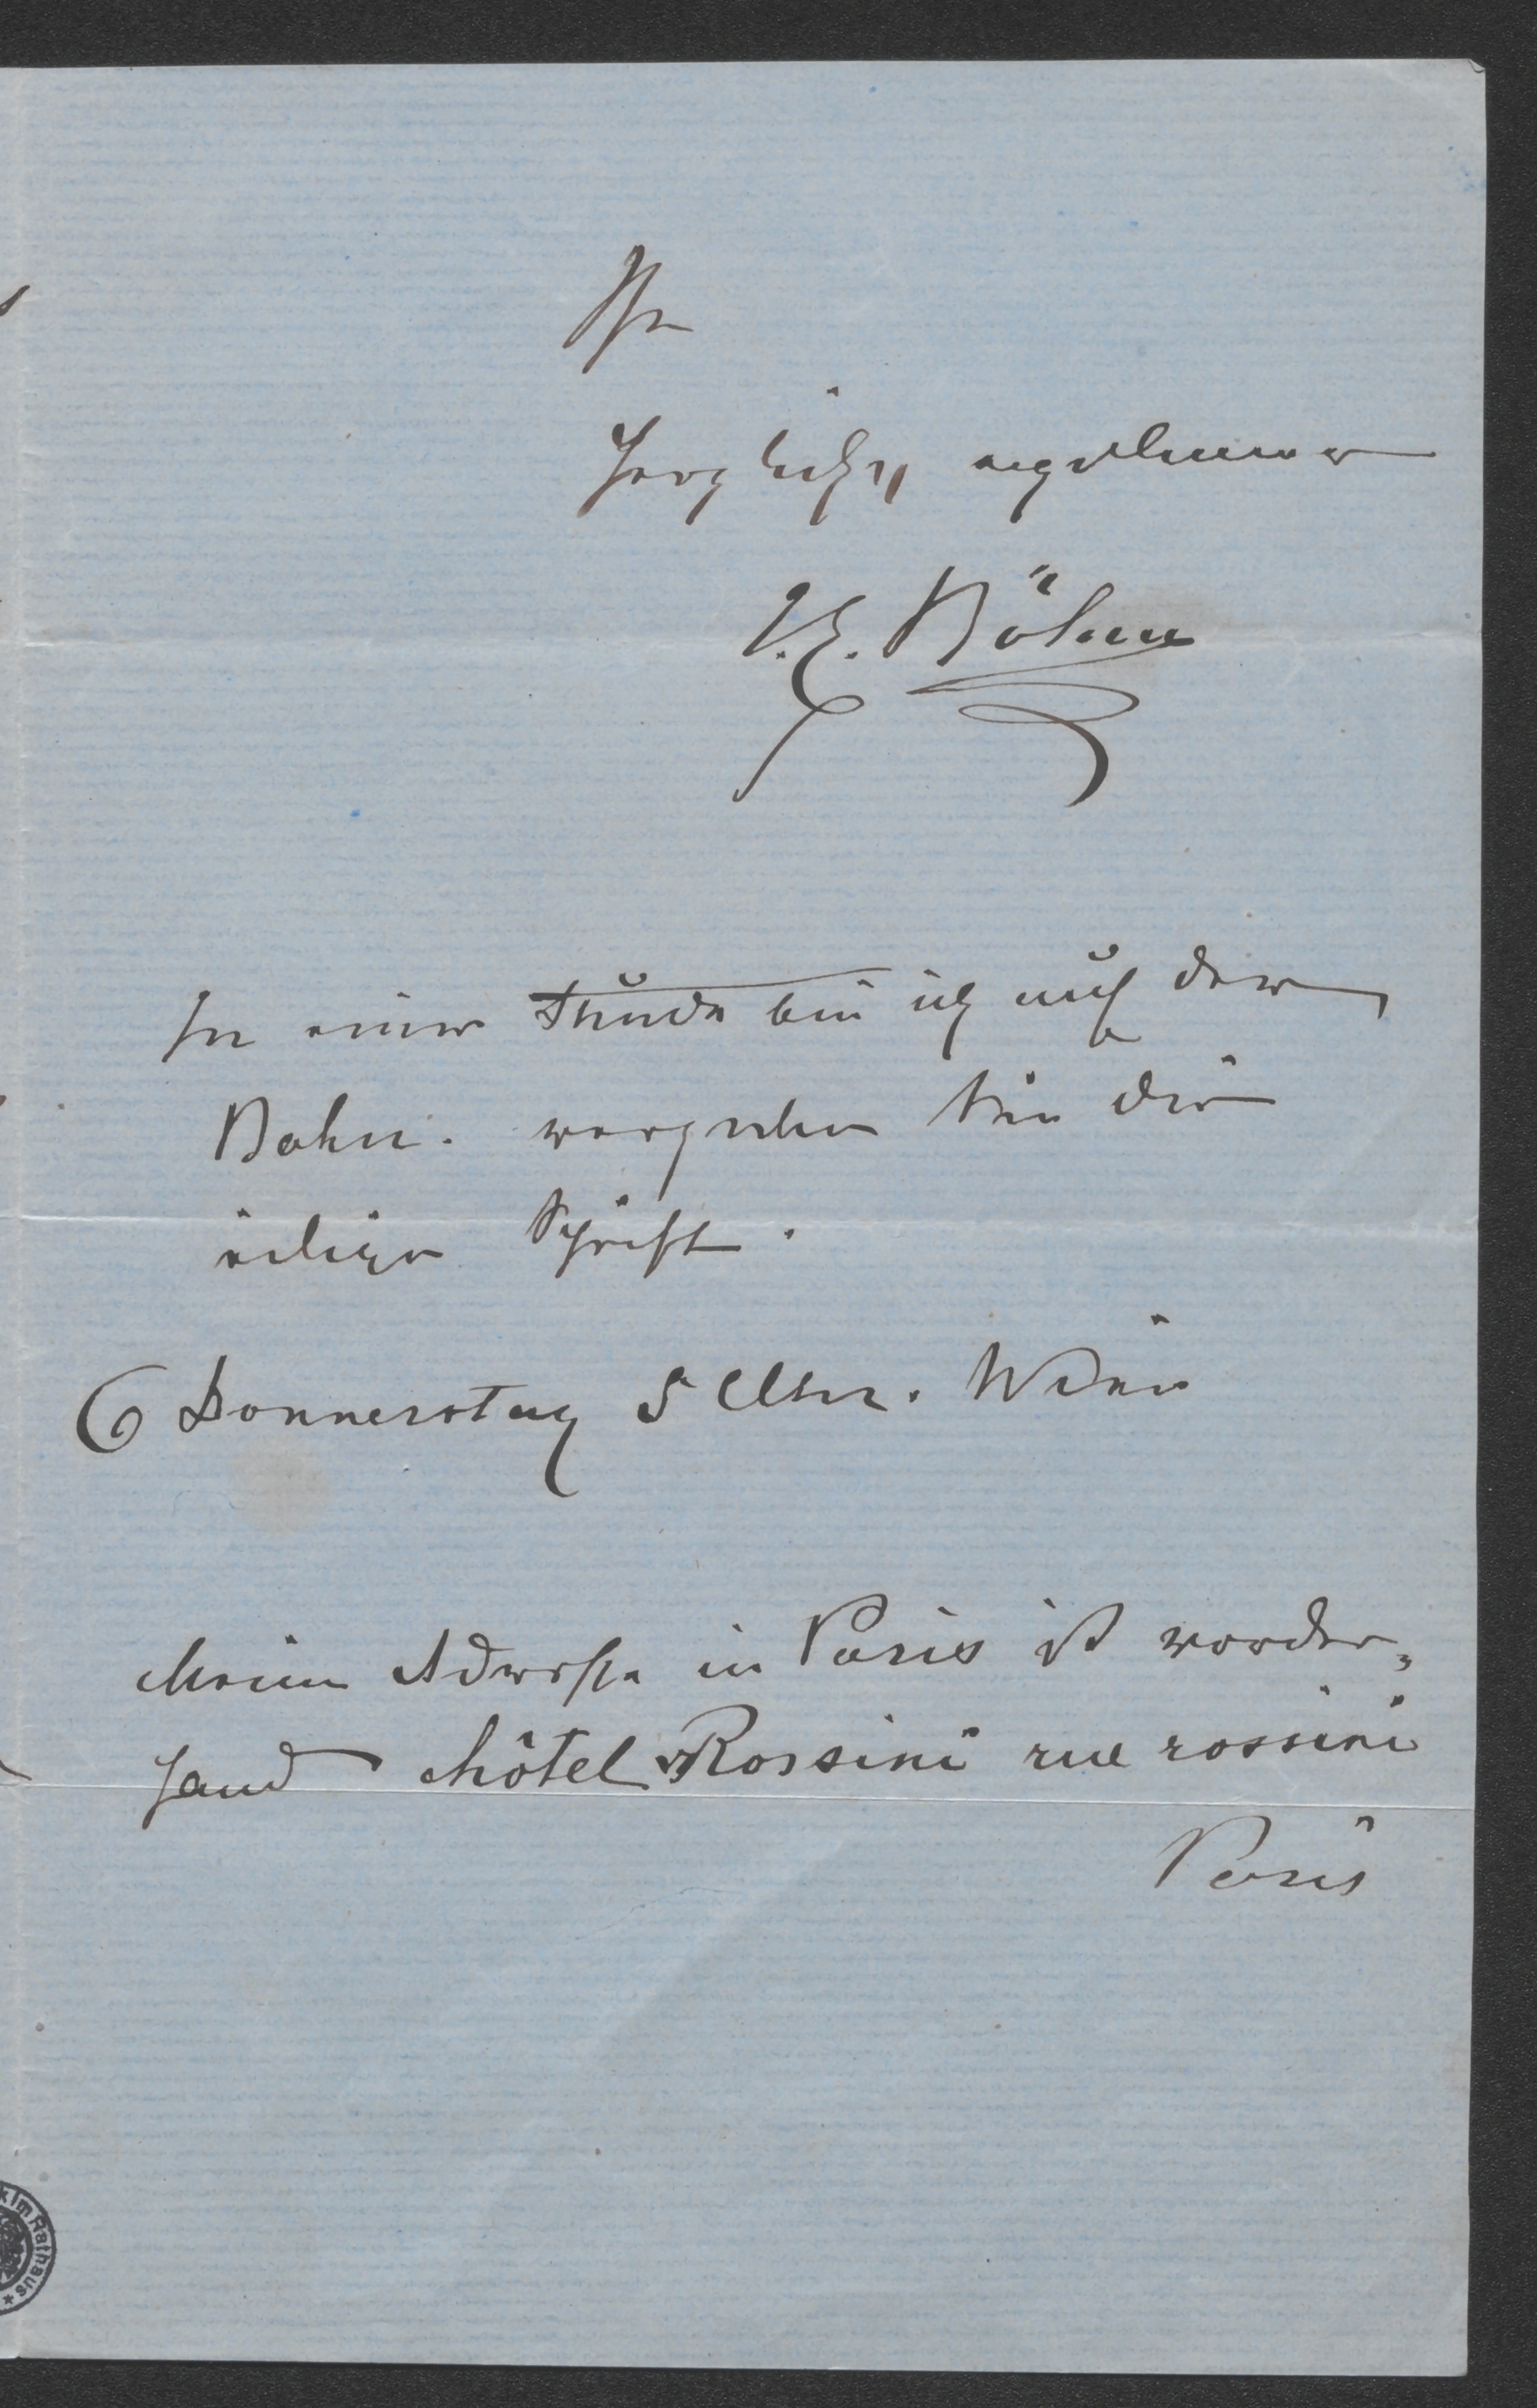 Ihr
herzlichst ergebener
J. E. Böhm
In einer Stunde bin ich auf der
Bahn. verzeihen Sie die
eilige Schrift.
Donnerstag 5 Uhr. Wien
Meine Adresse in Paris ist vorder=
hand hôtel Rossini rue rossini
Paris
k im Rathaus *